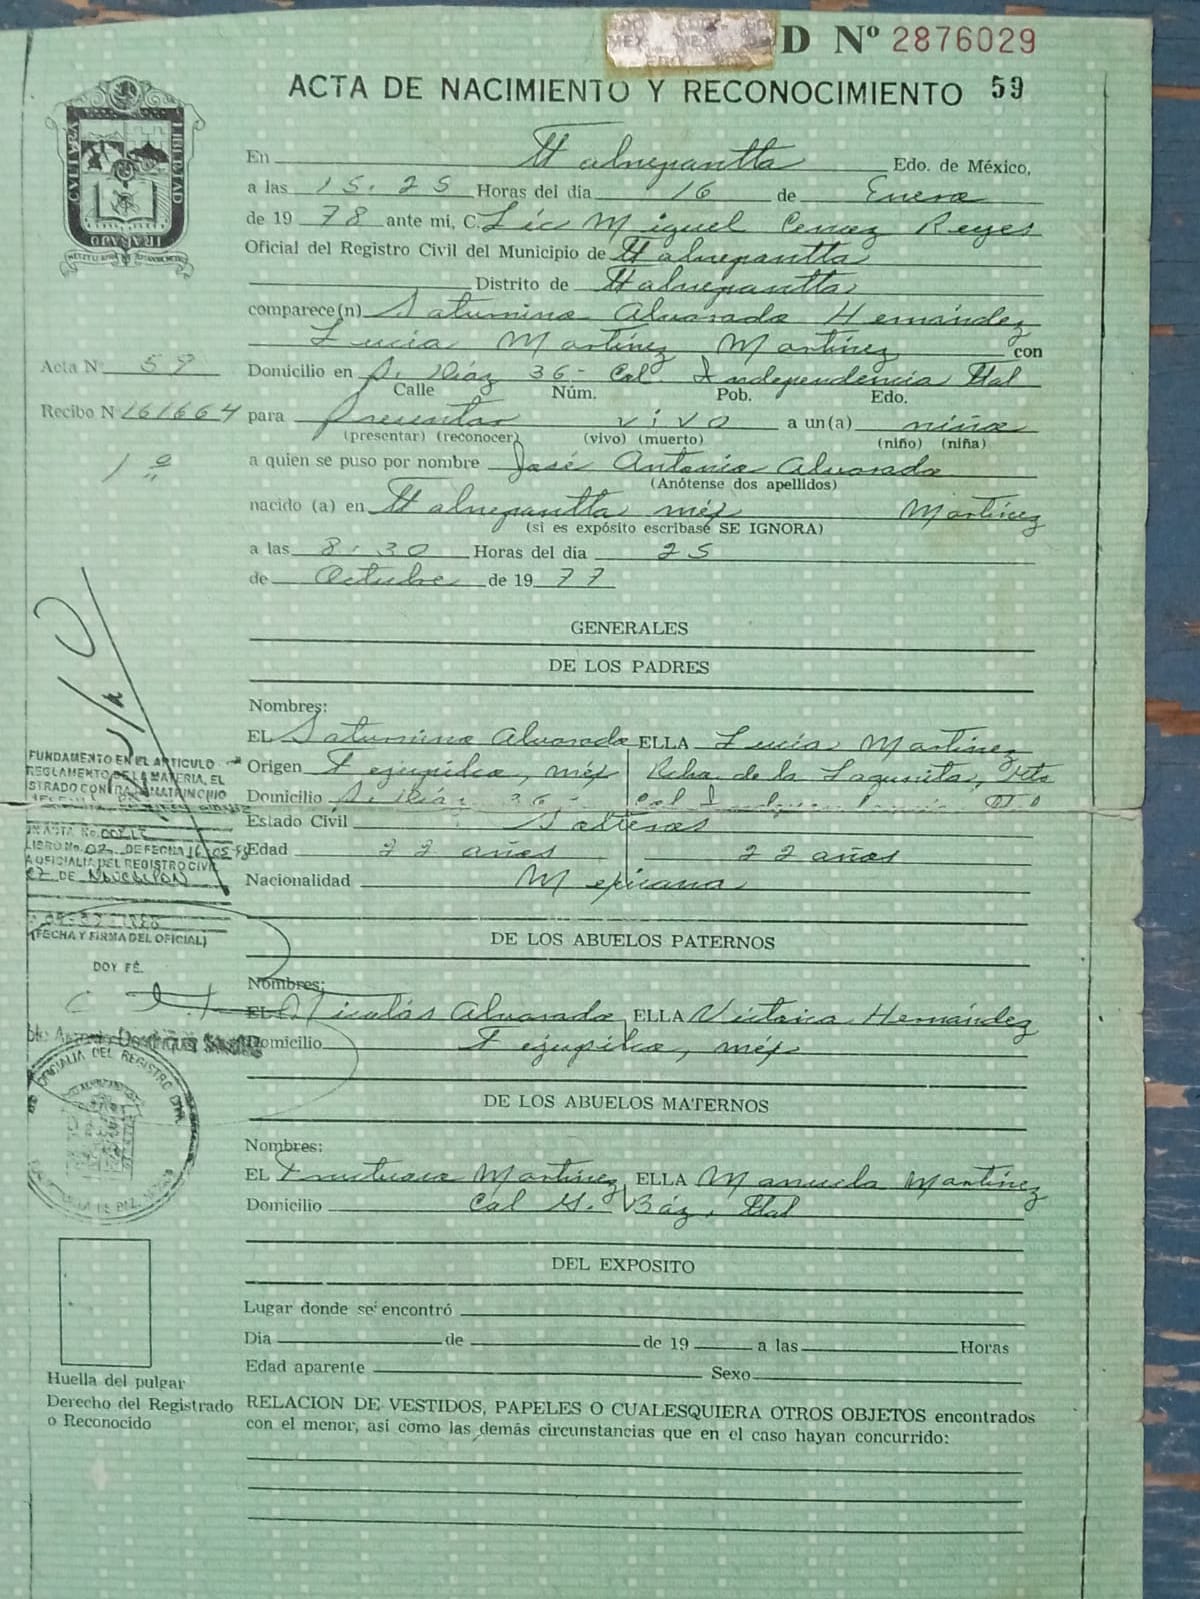 D Nº 2876029
ACTA DE NACIMIENTO Y RECONOCIMIENTO 59
CULTURA
LIBERTAD
TRABAJO
En Tlalnepantla Edo. de México,
a las 15.25 Horas del día 16 de Enero
de 1978 ante mi, C. Lic Miguel Reyes
Oficial del Registro Civil del Municipio de Tlalnepantla
Distrito de Tlalnepantla
comparece(n) Saturnino Alvarado Hernández
Lucia Martínez Martínez con
Acta Nº 59
Domicilio en P. Díaz 36- Col. Independencia Tlal
Calle Núm. Pob. Edo.
Recibo N 161664 para presentar vivo a un(a) niño
(presentar) (reconocer) (vivo) (muerto) (niño) (niña)
1ª
a quien se puso por nombre José Antonio Alvarado
(Anótense dos apellidos)
nacido (a) en Tlalnepantla méx Martínez
(si es expósito escribase SE IGNORA)
a las 8.30 Horas del día 25
de Octubre de 1977
GENERALES
DE LOS PADRES
Nombres:
EL Saturnino Alvarado ELLA Lucia Martínez
Origen Tejupilco, méx Rcho. de la Lagunita, Gto
Domicilio P. Díaz 36- Col
Estado Civil Solteros
Edad 22 años 22 años
Nacionalidad Mexicana
FUNDAMENTO EN EL ARTICULO
REGLAMENTO DE LA MATERIA, EL
STRADO CONTRAJO MATRIMONIO
ACTA No. 00
LIBRO No. 02 DE FECHA 16-05-98
A OFICIALIA DEL REGISTRO CIVIL
DE
(FECHA Y FIRMA DEL OFICIAL)
DOY FÉ.
DE LOS ABUELOS PATERNOS
Nombres:
EL Nicolás Alvarado ELLA Victoria Hernández
Domicilio Tejupilco, méx
OFICIALIA DEL REGISTRO CIVIL
DE LOS ABUELOS MATERNOS
Nombres:
EL Fructuoso Martínez ELLA Manuela Martínez
Domicilio Col G. Báz, Tlal
DEL EXPOSITO
Lugar donde se encontró
Dia de de 19 a las Horas
Edad aparente Sexo
Huella del pulgar
Derecho del Registrado
o Reconocido
RELACION DE VESTIDOS, PAPELES O CUALESQUIERA OTROS OBJETOS encontrados
con el menor, así como las demás circunstancias que en el caso hayan concurrido: